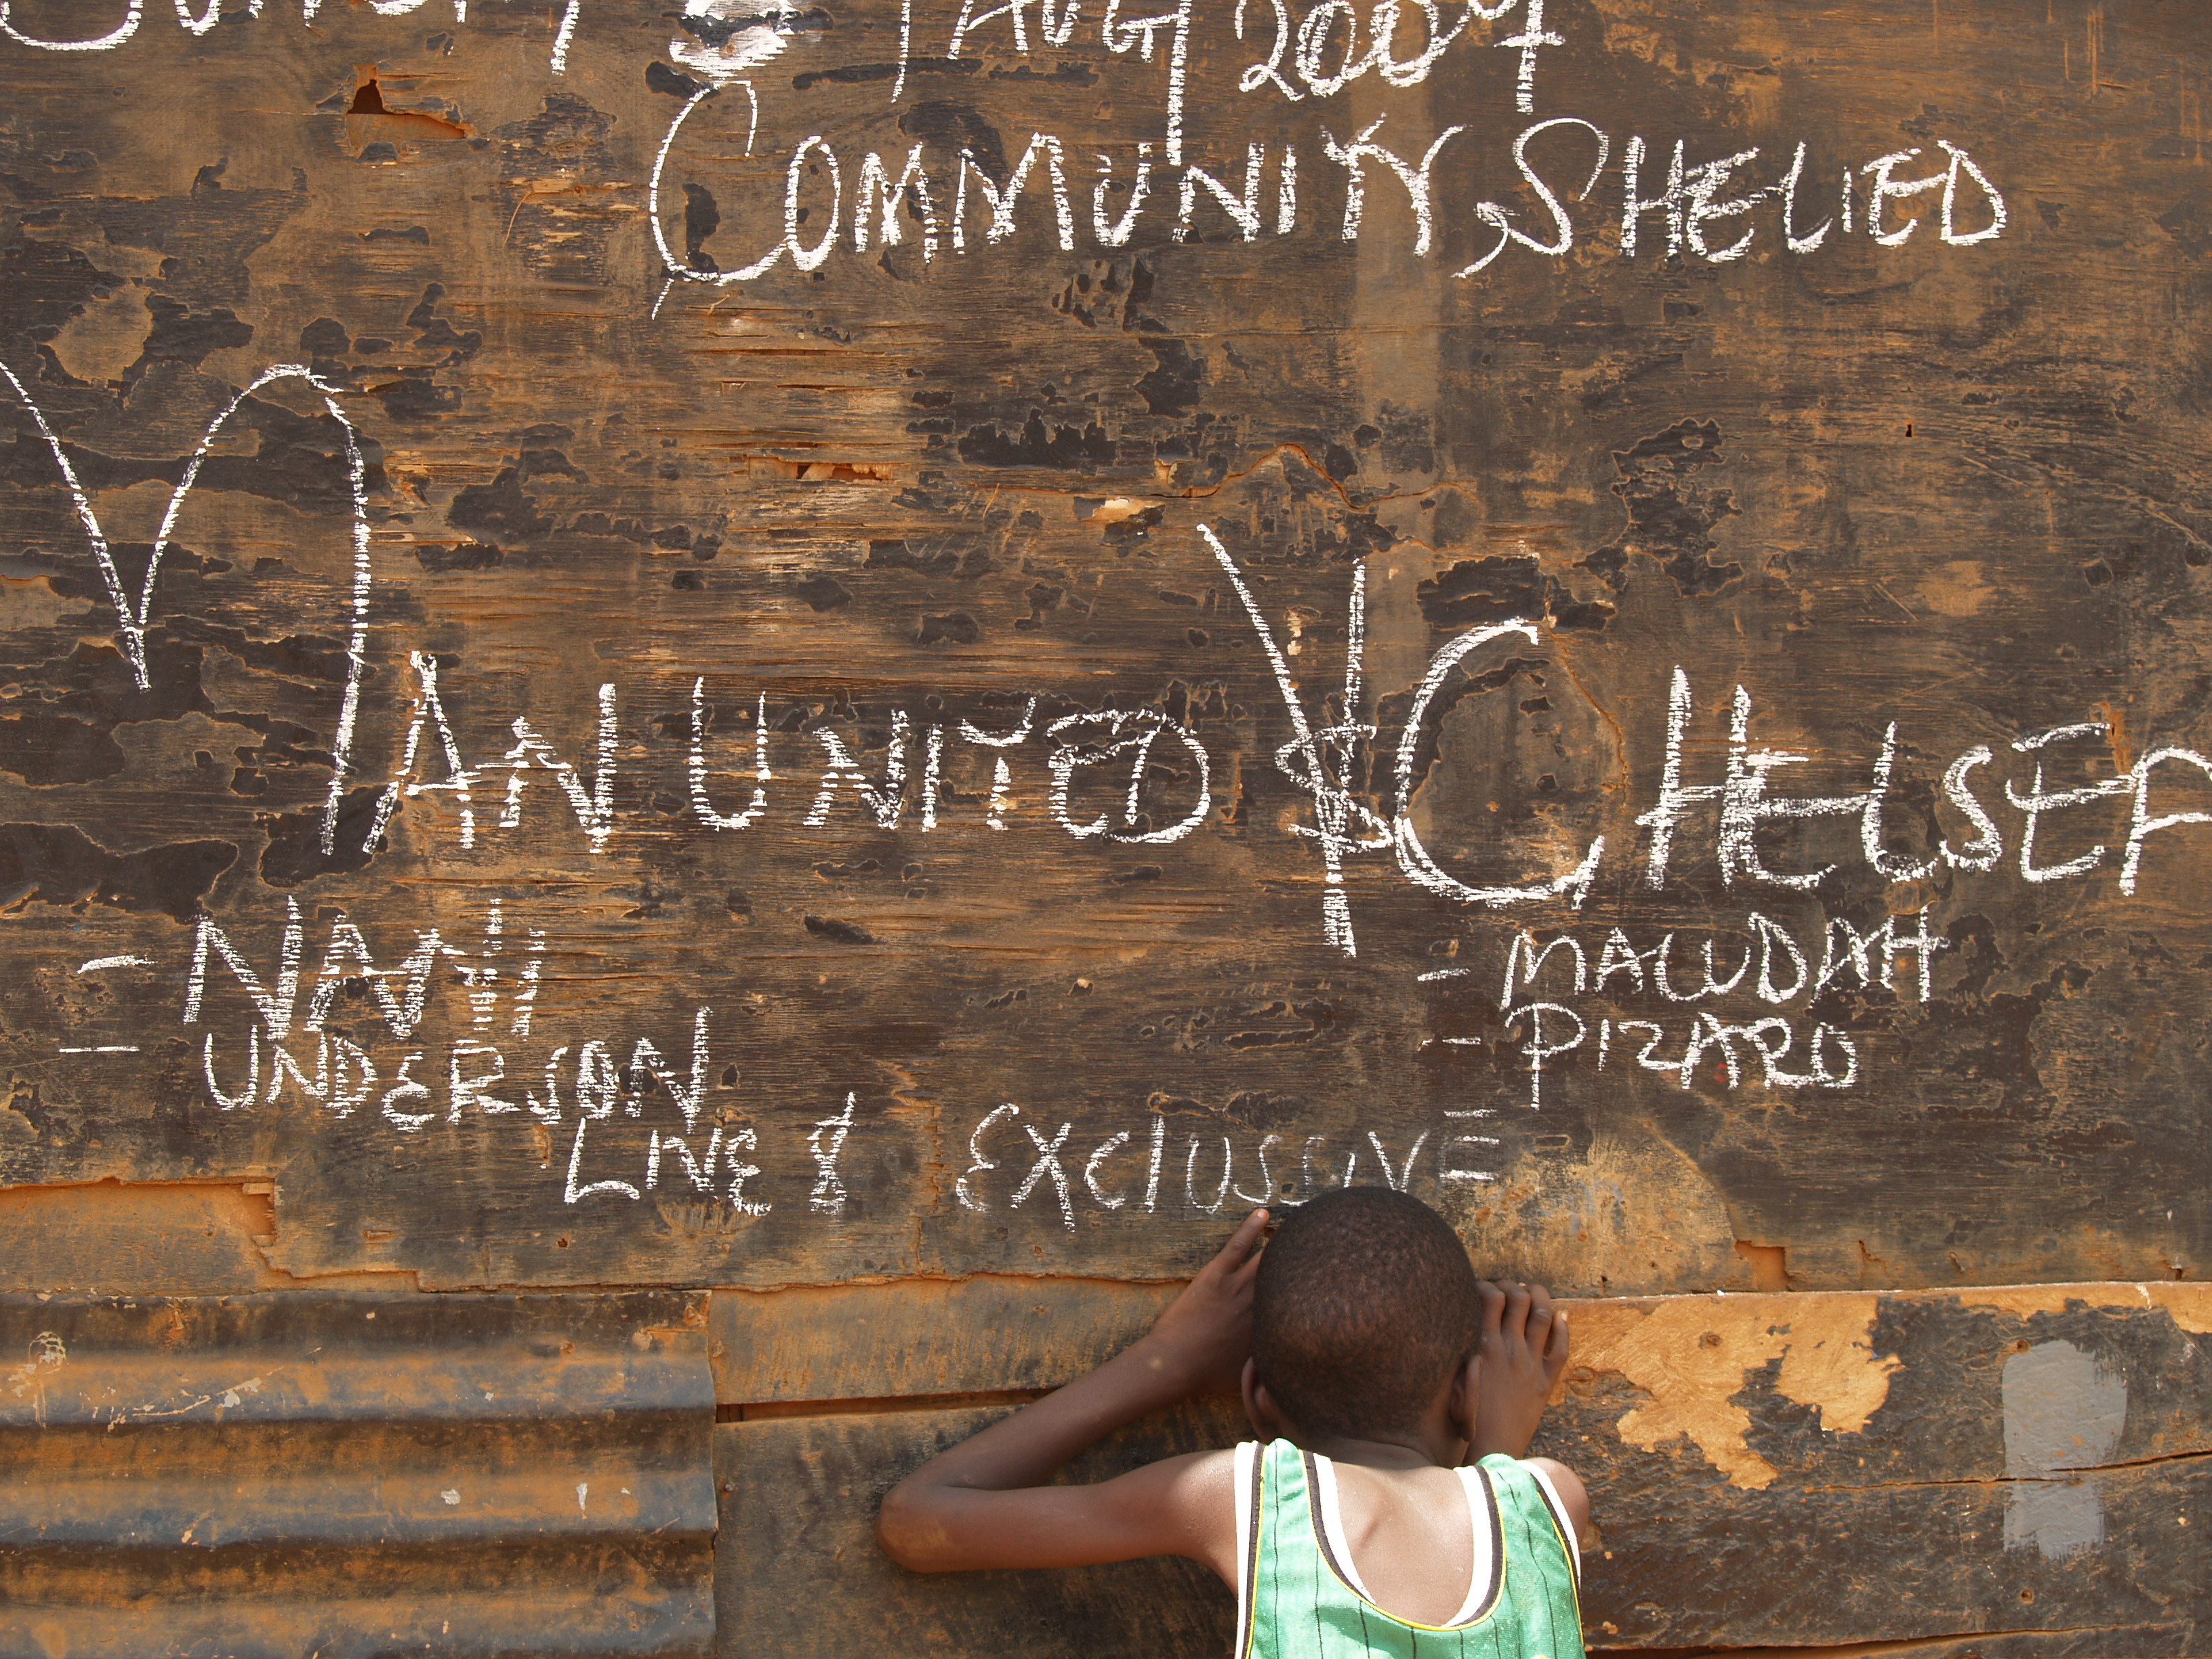 AUG 2007
COMMUNITY SHELIED
MAN UNITED VS CHELSEA
- NANI - MALUDAH
- UNDERSON - PIZARO
LIVE & EXCLUSSIVE